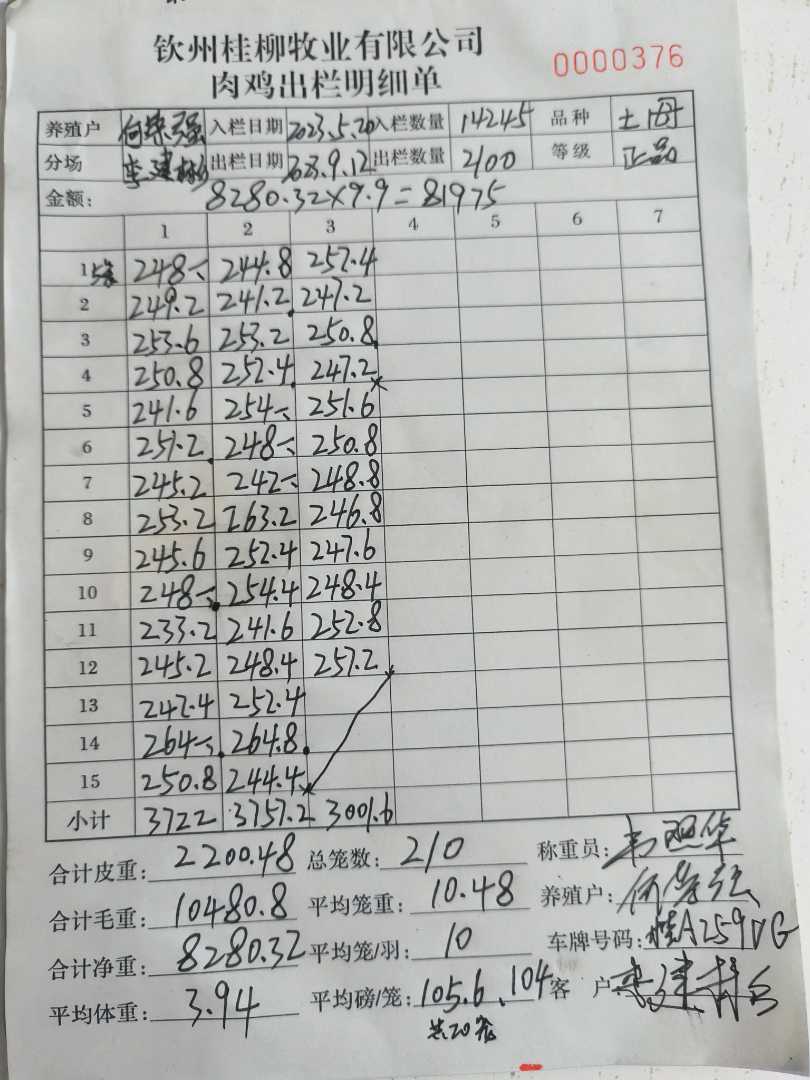 钦州桂柳牧业有限公司
肉鸡出栏明细单 0000376
养殖户 何荣强 入栏日期 2023.5.20 入栏数量 14245 品种 土母
分场 李建 出栏日期 2023.9.12 出栏数量 2100 等级 正品
金额: 8280.32×9.9=81975
1 2 3 4 5 6 7
1 248 244.8 252.4
2 249.2 241.2 247.2
3 253.6 253.2 250.8
4 250.8 252.4 247.2
5 241.6 254 251.6
6 251.2 248 250.8
7 245.2 242 248.8
8 253.2 263.2 246.8
9 245.6 252.4 247.6
10 248 254.4 248.4
11 233.2 241.6 252.8
12 245.2 248.4 257.2
13 242.4 252.4
14 264 264.8
15 250.8 244.4
小计 3722 3757.2 3001.6
合计皮重: 2200.48 总笼数: 210 称重员: 韦
合计毛重: 10480.8 平均笼重: 10.48 养殖户: 何荣强
合计净重: 8280.32 平均笼/羽: 10 车牌号码: 桂A259DG
平均体重: 3.94 平均磅/笼: 105.6、104 客户 李建
共20笼